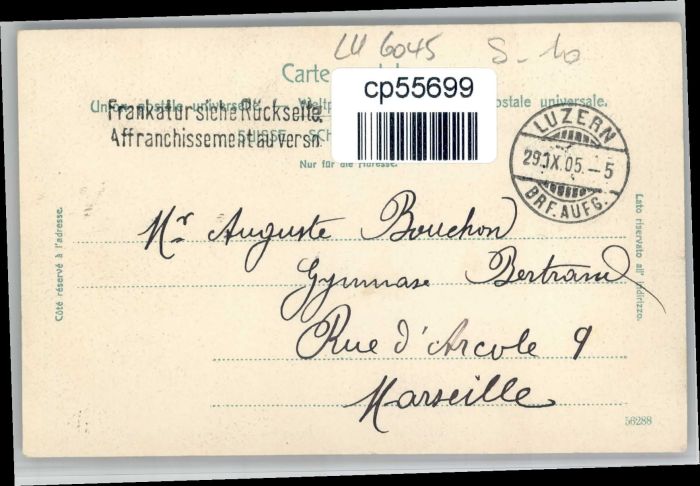 LU 6045 S-10
Carte
cp55699
Union postale universelle. — Weltp postale universale.
Frankatur siehe Rückseite.
Affranchissement au versn
SUISSE. SCH
Nur für die Adresse.
LUZERN
29.IX.05.-5
BRF.AUFG.
Côté réservé à l'adresse.
Lato riservato all' indirizzo.
Mr Auguste Bouchon
Gymnase Bertrand
Rue d'Arcole 9
Marseille
56288